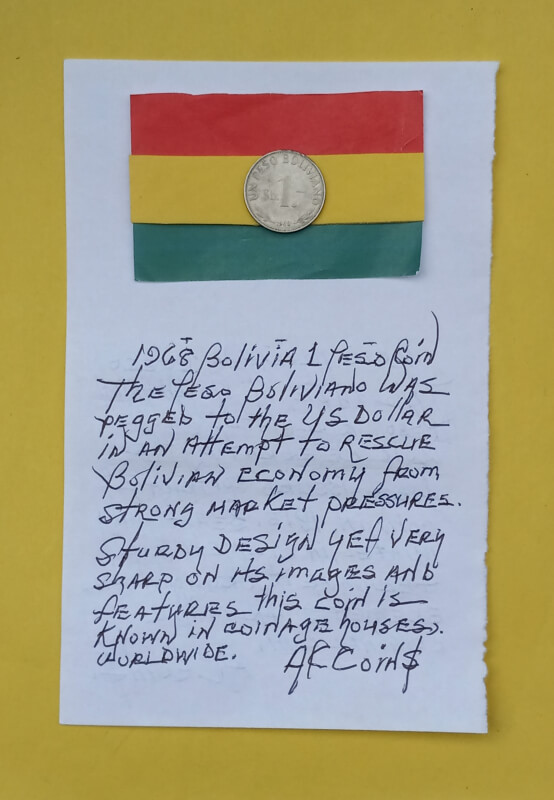 UN PESO BOLIVIANO
$b. 1.-
1968 Bolivia 1 Peso Coin
The Peso Boliviano was
pegged to the US Dollar
in an attempt to rescue
Bolivian economy from
strong market pressures.
Sturdy design yet very
sharp on its images and
features this coin is
known in coinage houses
worldwide. AK Coin$